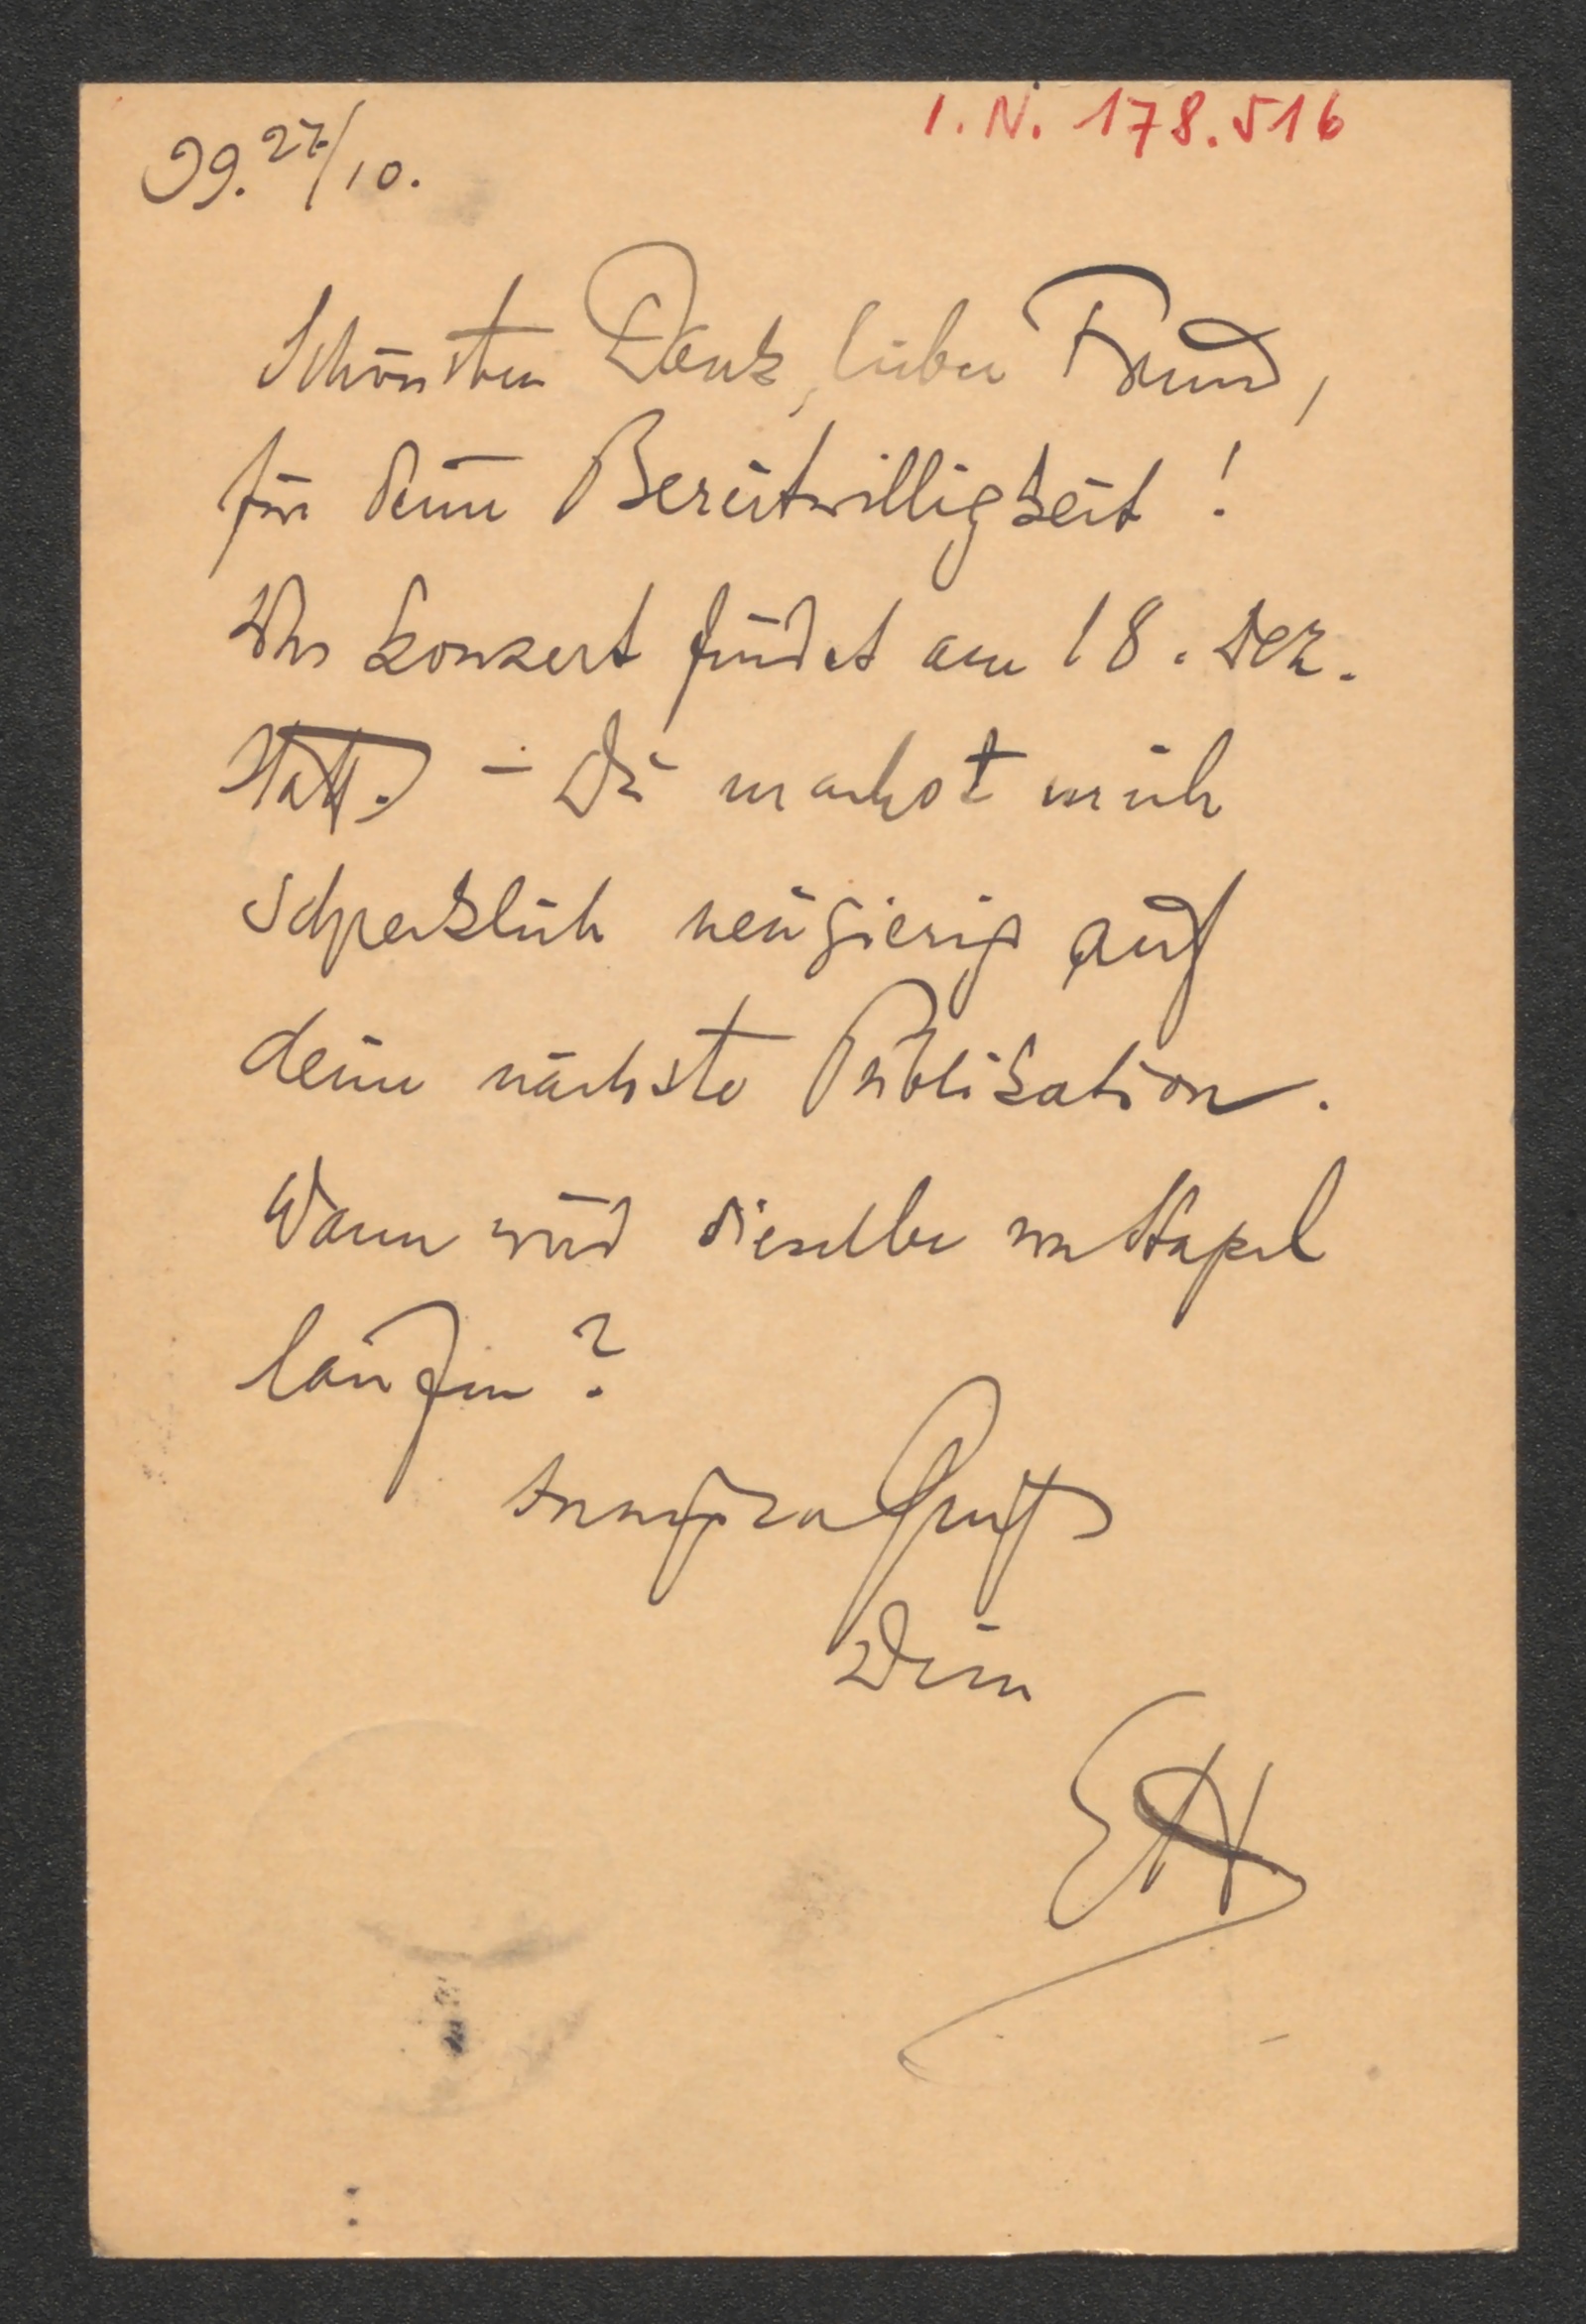 I.N. 178.516
99. 27/10.
Schönsten Dank, lieber Freund,
für deine Bereitwilligkeit!
Das Konzert findet am 18. Dez.
statt. – Du machst mich
schrecklich neugierig auf
deine nächste Publikation.
Wann wird dieselbe vom Stapel
laufen?
Dein